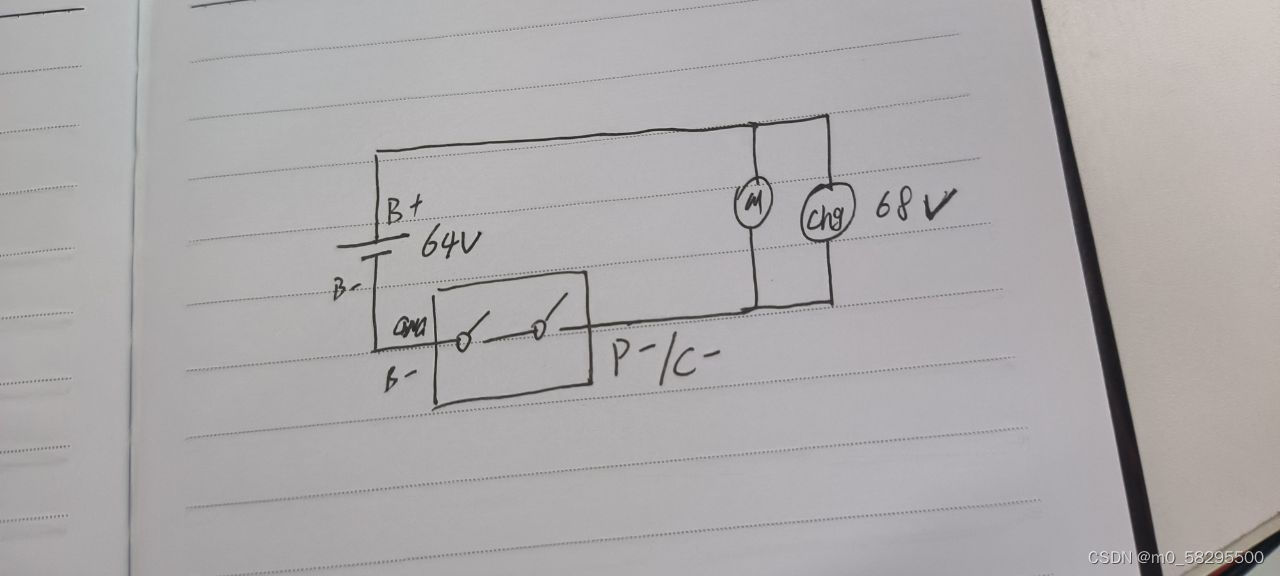 B+
64V
B-
B-
M
chg
68V
P-/C-
CSDN @m0_58295500